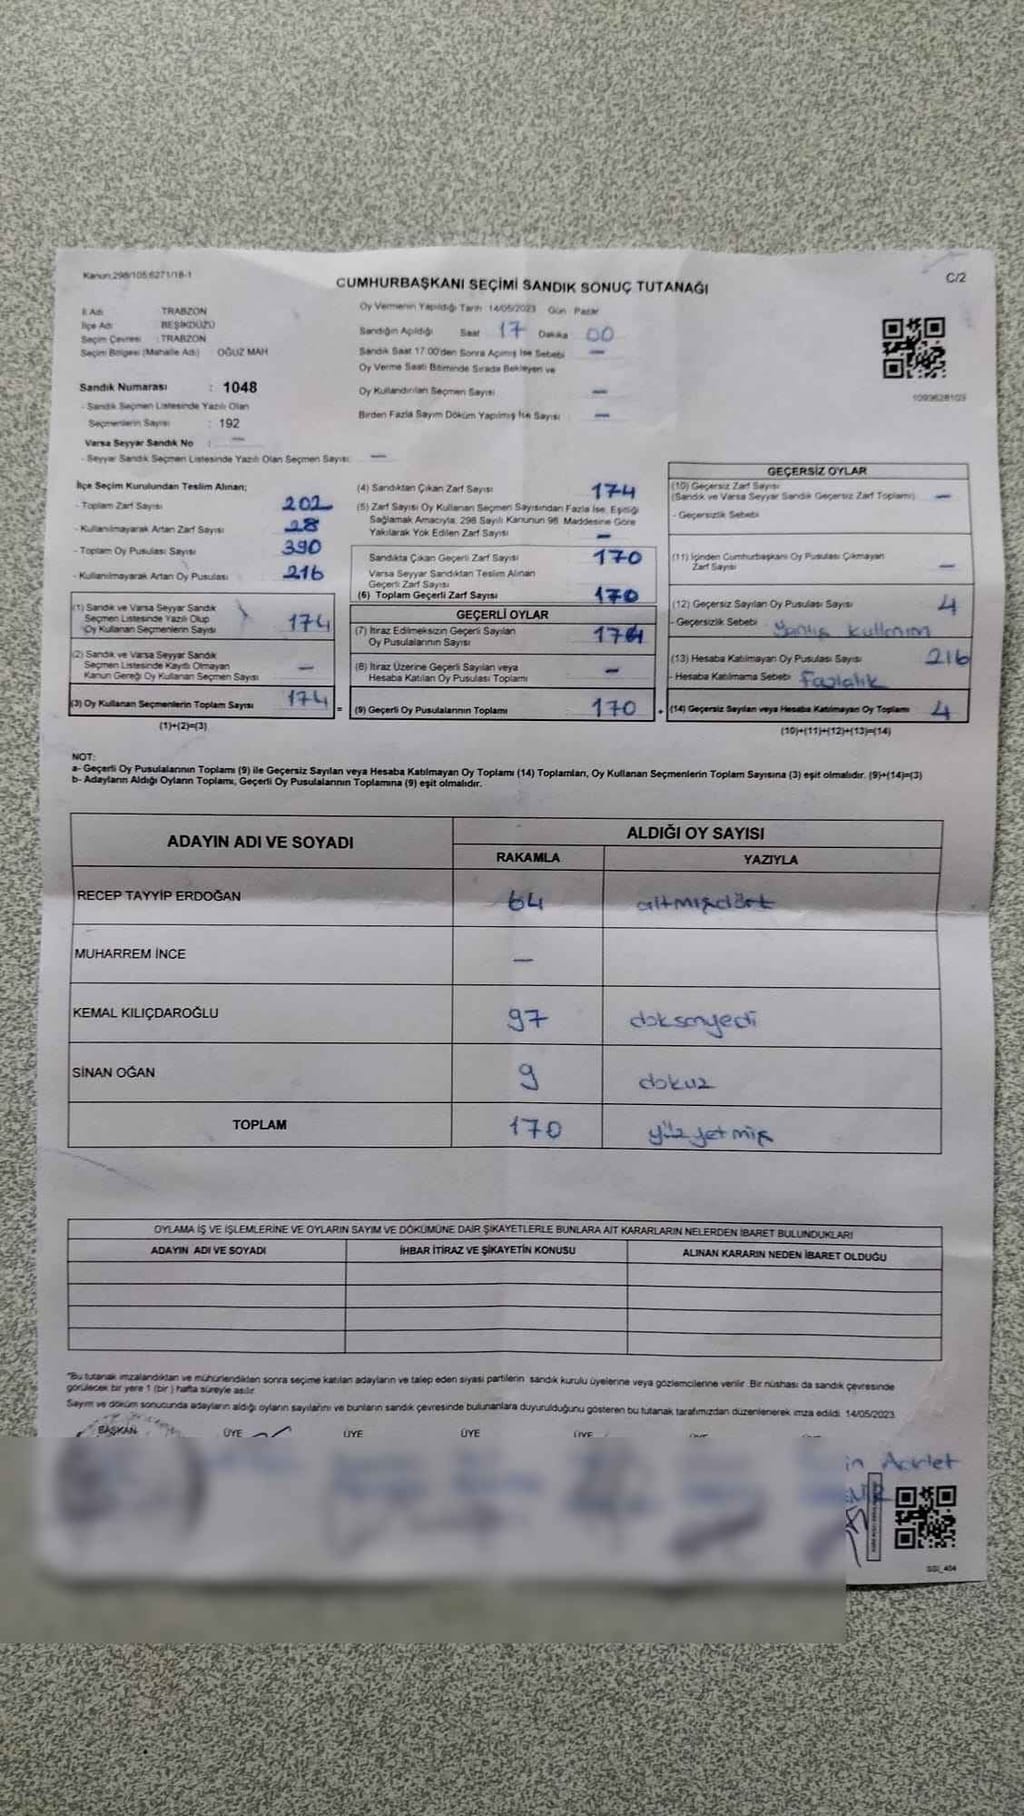 Kanun:298/105,6271/18-1
C/2
CUMHURBAŞKANI SEÇİMİ SANDIK SONUÇ TUTANAĞI
İl Adı TRABZON
İlçe Adı BEŞİKDÜZÜ
Seçim Çevresi : TRABZON
Seçim Bölgesi (Mahalle Adı) OĞUZ MAH
Sandık Numarası : 1048
- Sandık Seçmen Listesinde Yazılı Olan
Seçmenlerin Sayısı : 192
Varsa Seyyar Sandık No : —
- Seyyar Sandık Seçmen Listesinde Yazılı Olan Seçmen Sayısı: —
Oy Vermenin Yapıldığı Tarih :14/05/2023 Gün Pazar
Sandığın Açıldığı Saat 17 Dakika 00
Sandık Saat 17.00'den Sonra Açımış İse Sebebi —
Oy Verme Saati Bitiminde Sırada Bekleyen ve
Oy Kullandırılan Seçmen Sayısı —
Birden Fazla Sayım Döküm Yapılmış İse Sayısı —
1093628103
İlçe Seçim Kurulundan Teslim Alınan;
- Toplam Zarf Sayısı 202
- Kullanılmayarak Artan Zarf Sayısı 28
- Toplam Oy Pusulası Sayısı 390
- Kullanılmayarak Artan Oy Pusulası 216
(1) Sandık ve Varsa Seyyar Sandık
Seçmen Listesinde Yazılı Olup
Oy Kullanan Seçmenlerin Sayısı 174
(2) Sandık ve Varsa Seyyar Sandık
Seçmen Listesinde Kayıtlı Olmayan
Kanun Gereği Oy Kullanan Seçmen Sayısı —
(3) Oy Kullanan Seçmenlerin Toplam Sayısı 174
(1)+(2)=(3)
=
(4) Sandıktan Çıkan Zarf Sayısı 174
(5) Zarf Sayısı Oy Kullanan Seçmen Sayısından Fazla İse, Eşitliği
Sağlamak Amacıyla; 298 Sayılı Kanunun 98. Maddesine Göre
Yakılarak Yok Edilen Zarf Sayısı —
Sandıkta Çıkan Geçerli Zarf Sayısı 170
Varsa Seyyar Sandıktan Teslim Alınan
Geçerli Zarf Sayısı
(6) Toplam Geçerli Zarf Sayısı 170
GEÇERLİ OYLAR
(7) İtiraz Edilmeksizin Geçerli Sayılan
Oy Pusulalarının Sayısı
(8) İtiraz Üzerine Geçerli Sayılan veya
Hesaba Katılan Oy Pusulası Toplamı —
(9) Geçerli Oy Pusulalarının Toplamı 170
+
GEÇERSİZ OYLAR
(10) Geçersiz Zarf Sayısı
(Sandık ve Varsa Seyyar Sandık Geçersiz Zarf Toplamı) —
- Geçersizlik Sebebi
(11) İçinden Cumhurbaşkanı Oy Pusulası Çıkmayan
Zarf Sayısı —
(12) Geçersiz Sayılan Oy Pusulası Sayısı 4
- Geçersizlik Sebebi Yanlış kullanım
(13) Hesaba Katılmayan Oy Pusulası Sayısı 216
- Hesaba Katılmama Sebebi Fazlalık
(14) Geçersiz Sayılan veya Hesaba Katılmayan Oy Toplamı 4
(10)+(11)+(12)+(13)=(14)
NOT:
a- Geçerli Oy Pusulalarının Toplamı (9) ile Geçersiz Sayılan veya Hesaba Katılmayan Oy Toplamı (14) Toplamları, Oy Kullanan Seçmenlerin Toplam Sayısına (3) eşit olmalıdır. (9)+(14)=(3)
b- Adayların Aldığı Oyların Toplamı, Geçerli Oy Pusulalarının Toplamına (9) eşit olmalıdır.
ADAYIN ADI VE SOYADI ALDIĞI OY SAYISI
RAKAMLA YAZIYLA
RECEP TAYYİP ERDOĞAN 64 altmışdört
MUHARREM İNCE —
KEMAL KILIÇDAROĞLU 97 doksanyedi
SİNAN OĞAN 9 dokuz
TOPLAM 170 yüz yetmiş
OYLAMA İŞ VE İŞLEMLERİNE VE OYLARIN SAYIM VE DÖKÜMÜNE DAİR ŞİKAYETLERLE BUNLARA AİT KARARLARIN NELERDEN İBARET BULUNDUKLARI
ADAYIN ADI VE SOYADI İHBAR İTİRAZ VE ŞİKAYETİN KONUSU ALINAN KARARIN NEDEN İBARET OLDUĞU
"Bu tutanak imzalandıktan ve mühürlendikten sonra seçime katılan adayların ve talep eden siyasi partilerin sandık kurulu üyelerine veya gözlemcilerine verilir. Bir nüshası da sandık çevresinde
görülecek bir yere 1 (bir) hafta süreyle asılır.
Sayım ve döküm sonucunda adayların aldığı oyların sayılarını ve bunların sandık çevresinde bulunanlara duyurulduğunu gösteren bu tutanak tarafımızdan düzenlenerek imza edildi. 14/05/2023
BAŞKAN ÜYE ÜYE ÜYE ÜYE
in Adalet
SGI_404